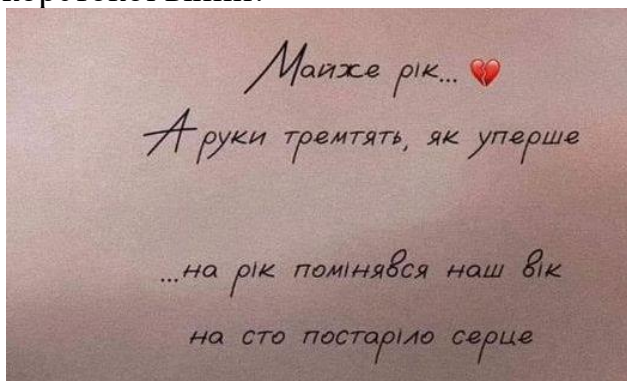 Майже рік... 💔
А руки тремтять, як уперше
...на рік помінявся наш вік
на сто постаріло серце